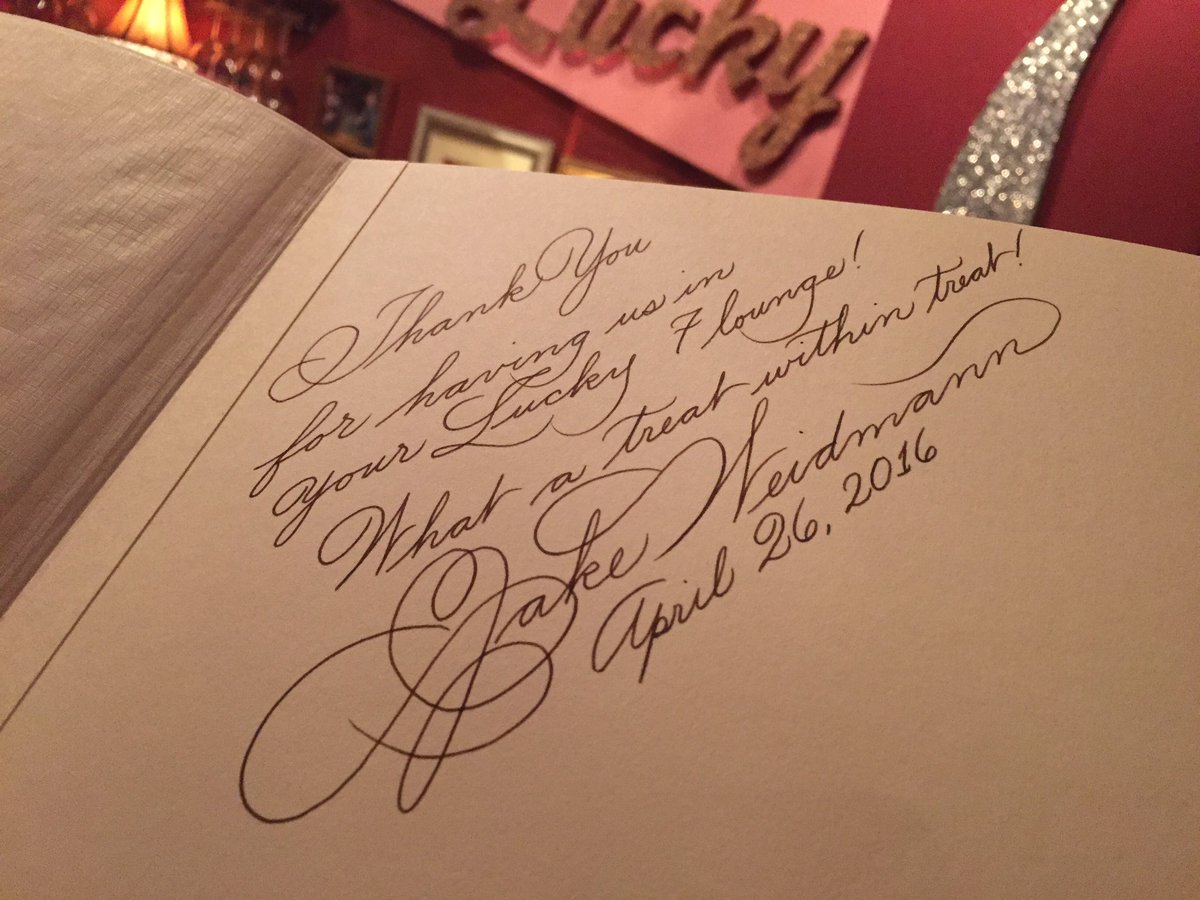 Lucky
Thank You
for having us in
your Lucky 7 lounge!
What a treat within treat!
Jake Weidmann
April 26, 2016